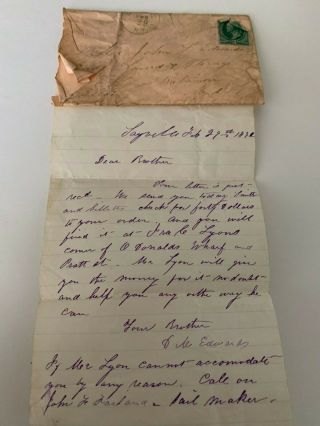 John
Sayville Feb 29th 188
Dear Brother
Your letter is just
recd. We send you today Smith
and check for forty Dollars
to your order. And you will
find it at Ira C Lyons
corner of O Donalds Wharf and
Pratt st. Mr Lyon will give
you the money for it no doubt
and help you any other way he
can
Your Brother
D M Edwards
If Mr Lyon cannot accomodate
you by any reason. Call on
John H - Sail Maker.